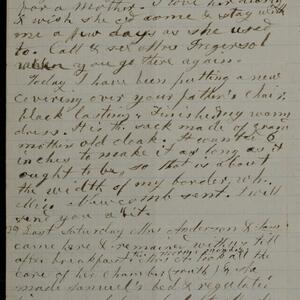 for a Mother. I love her dearly
& wish she cd come & stay with
me a few days as she used
to. Call & see Mrs
when you go there again.
Today I have been putting a new
covering over your father's chair,
black lasting, & finishing my
dress. It is the sack made of Grand
mother's old cloak. It wanted 6
inches to make it as long as it
ought to be, so that is about
the width of my border, wh.
Newcomb sent. I will
send you a bit.
Last Saturday Mrs Anderson &
came here & remained with us till
after breakfast this Monday morning.
Mrs A. took all the
care of her chamber (south) & she
made Samuel's bed & regulated